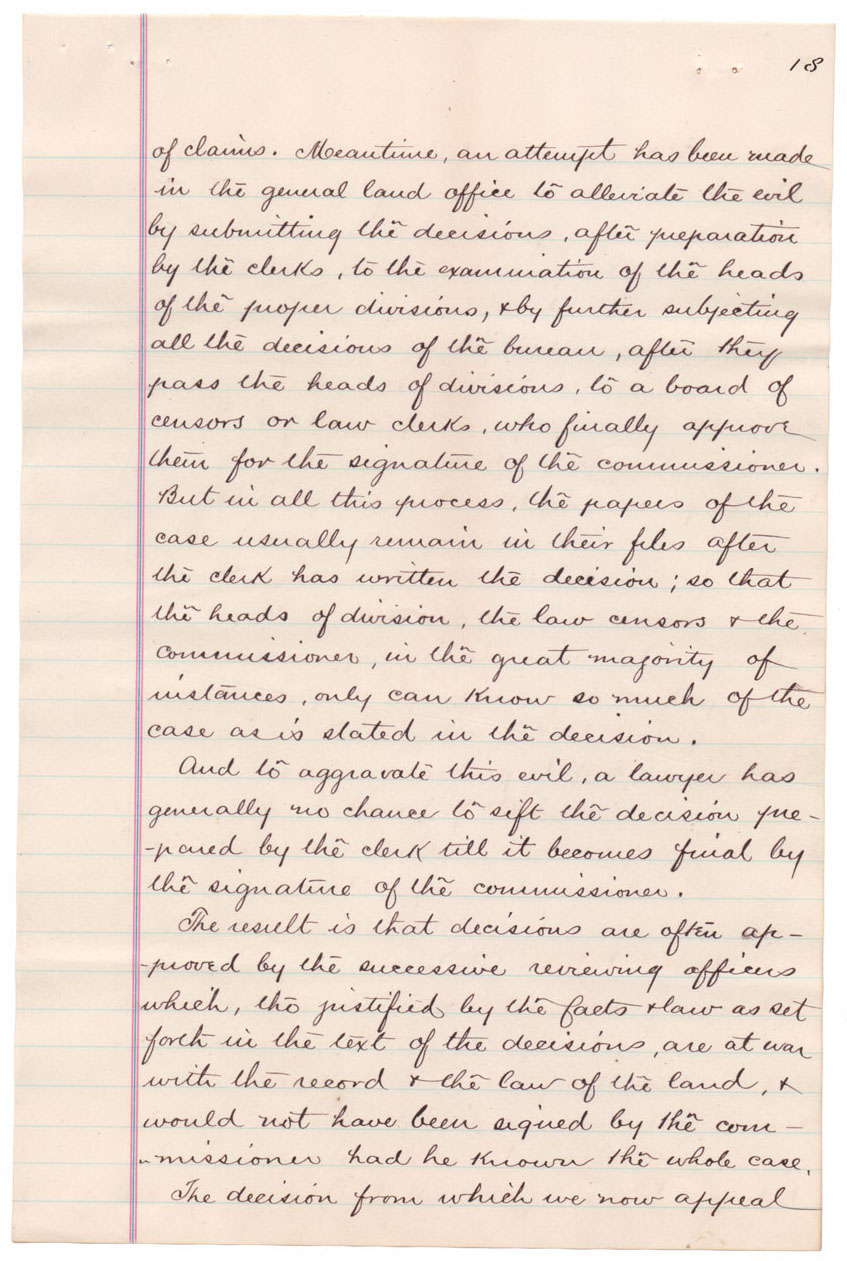 18
of claims. Meantime, an attempt has been made
in the general land office to alleviate the evil
by submitting the decisions, after preparation
by the clerks, to the examination of the heads
of the proper divisions, & by further subjecting
all the decisions of the bureau, after they
pass the heads of divisions, to a board of
censors or law clerks, who finally approve
them for the signature of the commissioner.
But in all this process, the papers of the
case usually remain in their files after
the clerk has written the decision; so that
the heads of division, the law censors & the
commissioner, in the great majority of
instances, only can know so much of the
case as is stated in the decision.
And to aggravate this evil, a lawyer has
generally no chance to sift the decision pre-
-pared by the clerk till it becomes final by
the signature of the commissioner.
The result is that decisions are often ap-
-proved by the successive reviewing officers
which, tho justified by the facts & law as set
forth in the text of the decisions, are at war
with the record & the law of the land, &
would not have been signed by the com-
-missioner had he known the whole case.
The decision from which we now appeal